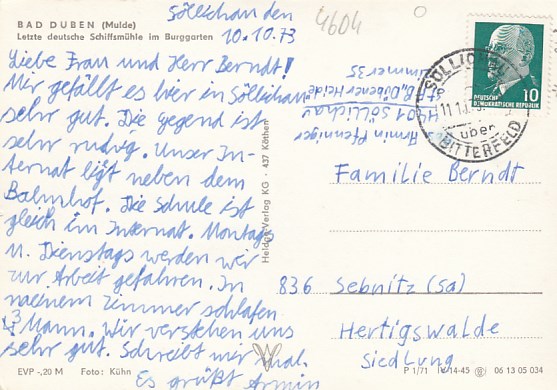 BAD DUBEN (Mulde)
Letzte deutsche Schiffsmühle im Burggarten
Söllichau den
10.10.73
4604
Liebe Frau und Herr Berndt!
Mir gefällt es hier in Söllichau
sehr gut. Die Gegend ist
sehr ruhig. Unser In-
ternat ligt neben dem
Bahnhof. Die Schule ist
gleich im Internat. Montags
u. Dienstags werden wir
zur Arbeit gefahren. In
meinem Zimmer schlafen
3 Mann. Wir verstehen uns
sehr gut. Schreibt mir mal.
Es grüßt Armin
EVP -,20 M Foto: Kühn
Verlag KG · 437 Köthen
Armin Pfenniger
4401 Söllichau
Str. Dübener Heide
Zimmer 35
SÖLLICHAU
über
BITTERFELD
DEUTSCHE
DEMOKRATISCHE REPUBLIK
10
Familie Berndt
836 Sebnitz (Sa)
Hertigswalde
Siedlung
P 1/71 IV-14-45 06 13 05 034